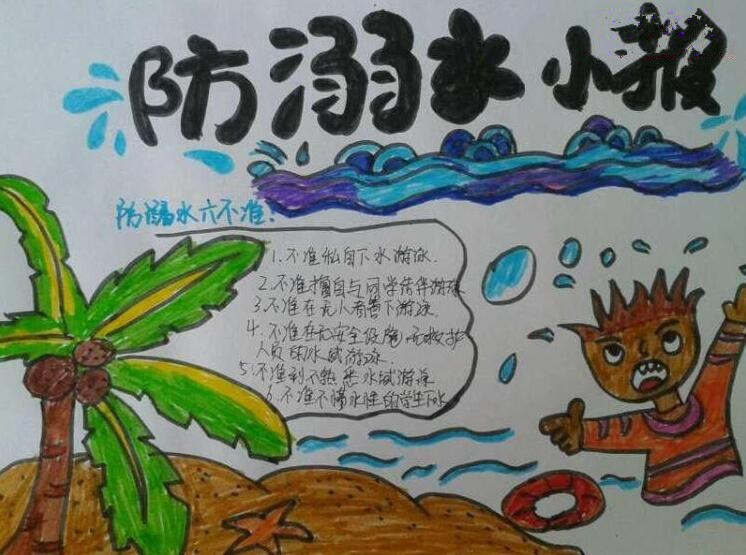 防溺水小报
防溺水六不准:
1.不准私自下水游泳.
2.不准擅自与同学结伴游泳
3.不准在无人看管下游泳.
4.不准在无安全设施,无救护
人员的水域游泳.
5.不准到不熟悉水域游泳
6.不准不懂水性的学生下水